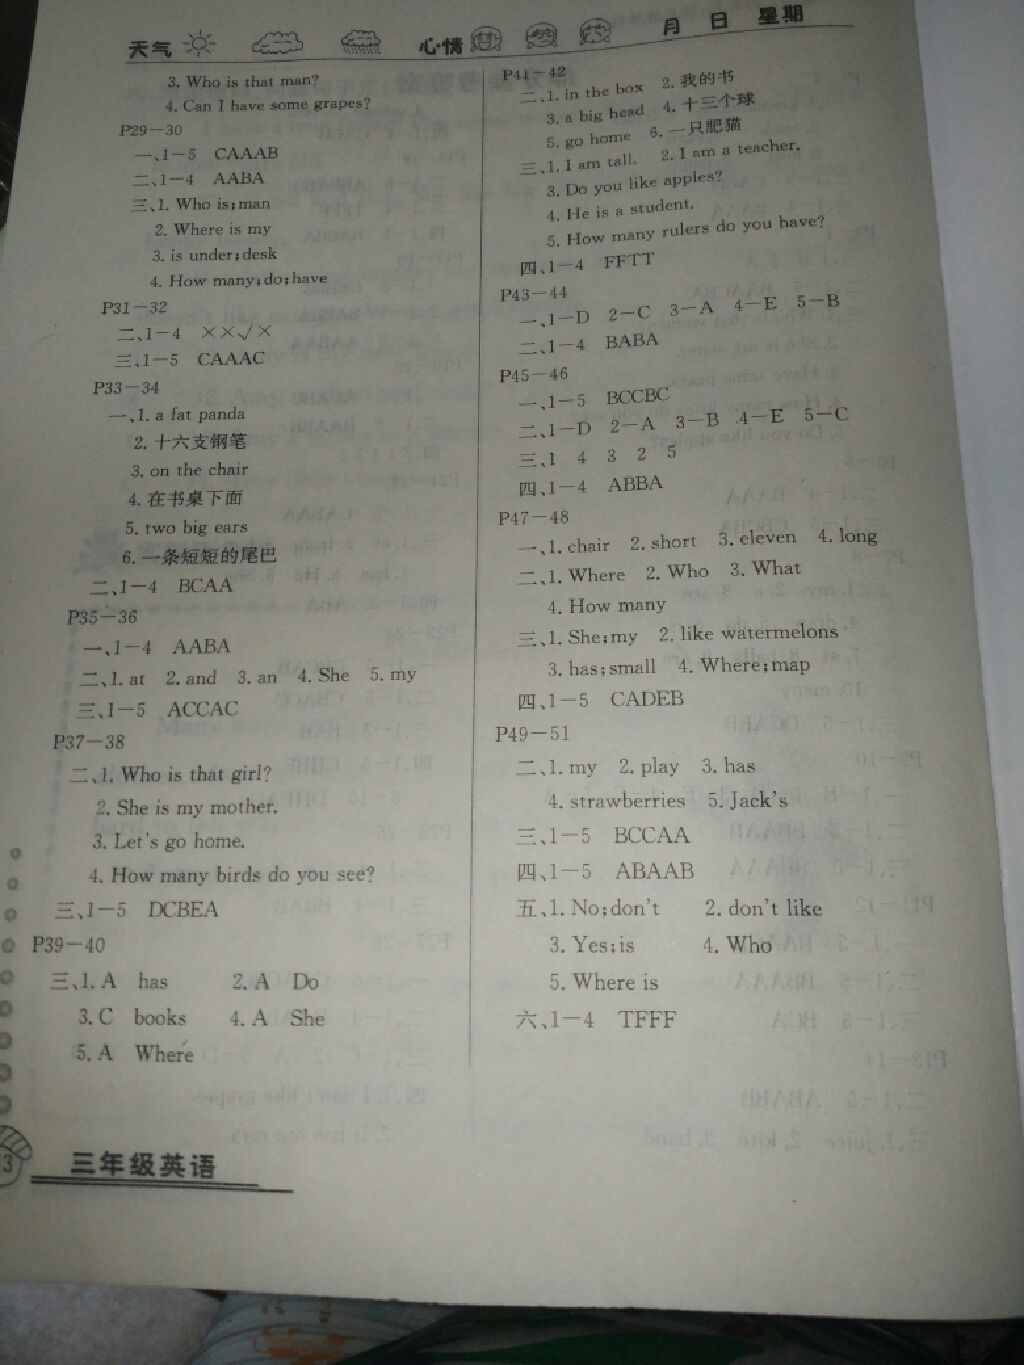 天气 心情 月 日 星期
3. Who is that man?
4. Can I have some grapes?
P29-30
一、1-5 CAAAB
二、1-4 AABA
三、1. Who is;man
2. Where is my
3. is under;desk
4. How many;do;have
P31-32
二、1-4 ××√×
三、1-5 CAAAC
P33-34
一、1. a fat panda
2. 十六支钢笔
3. on the chair
4. 在书桌下面
5. two big ears
6. 一条短短的尾巴
二、1-4 BCAA
P35-36
一、1-4 AABA
二、1. at 2. and 3. an 4. She 5. my
三、1-5 ACCAC
P37-38
二、1. Who is that girl?
2. She is my mother.
3. Let's go home.
4. How many birds do you see?
三、1-5 DCBEA
P39-40
三、1. A has 2. A Do
3. C books 4. A She
5. A Where
P41-42
二、1. in the box 2. 我的书
3. a big head 4. 十三个球
5. go home 6. 一只肥猫
三、1. I am tall. 2. I am a teacher.
3. Do you like apples?
4. He is a student.
5. How many rulers do you have?
四、1-4 FFTT
P43-44
一、1-D 2-C 3-A 4-E 5-B
二、1-4 BABA
P45-46
一、1-5 BCCBC
二、1-D 2-A 3-B 4-E 5-C
三、1 4 3 2 5
四、1-4 ABBA
P47-48
一、1. chair 2. short 3. eleven 4. long
二、1. Where 2. Who 3. What
4. How many
三、1. She;my 2. like watermelons
3. has;small 4. Where;map
四、1-5 CADEB
P49-51
二、1. my 2. play 3. has
4. strawberries 5. Jack's
三、1-5 BCCAA
四、1-5 ABAAB
五、1. No;don't 2. don't like
3. Yes;is 4. Who
5. Where is
六、1-4 TFFF
三年级英语